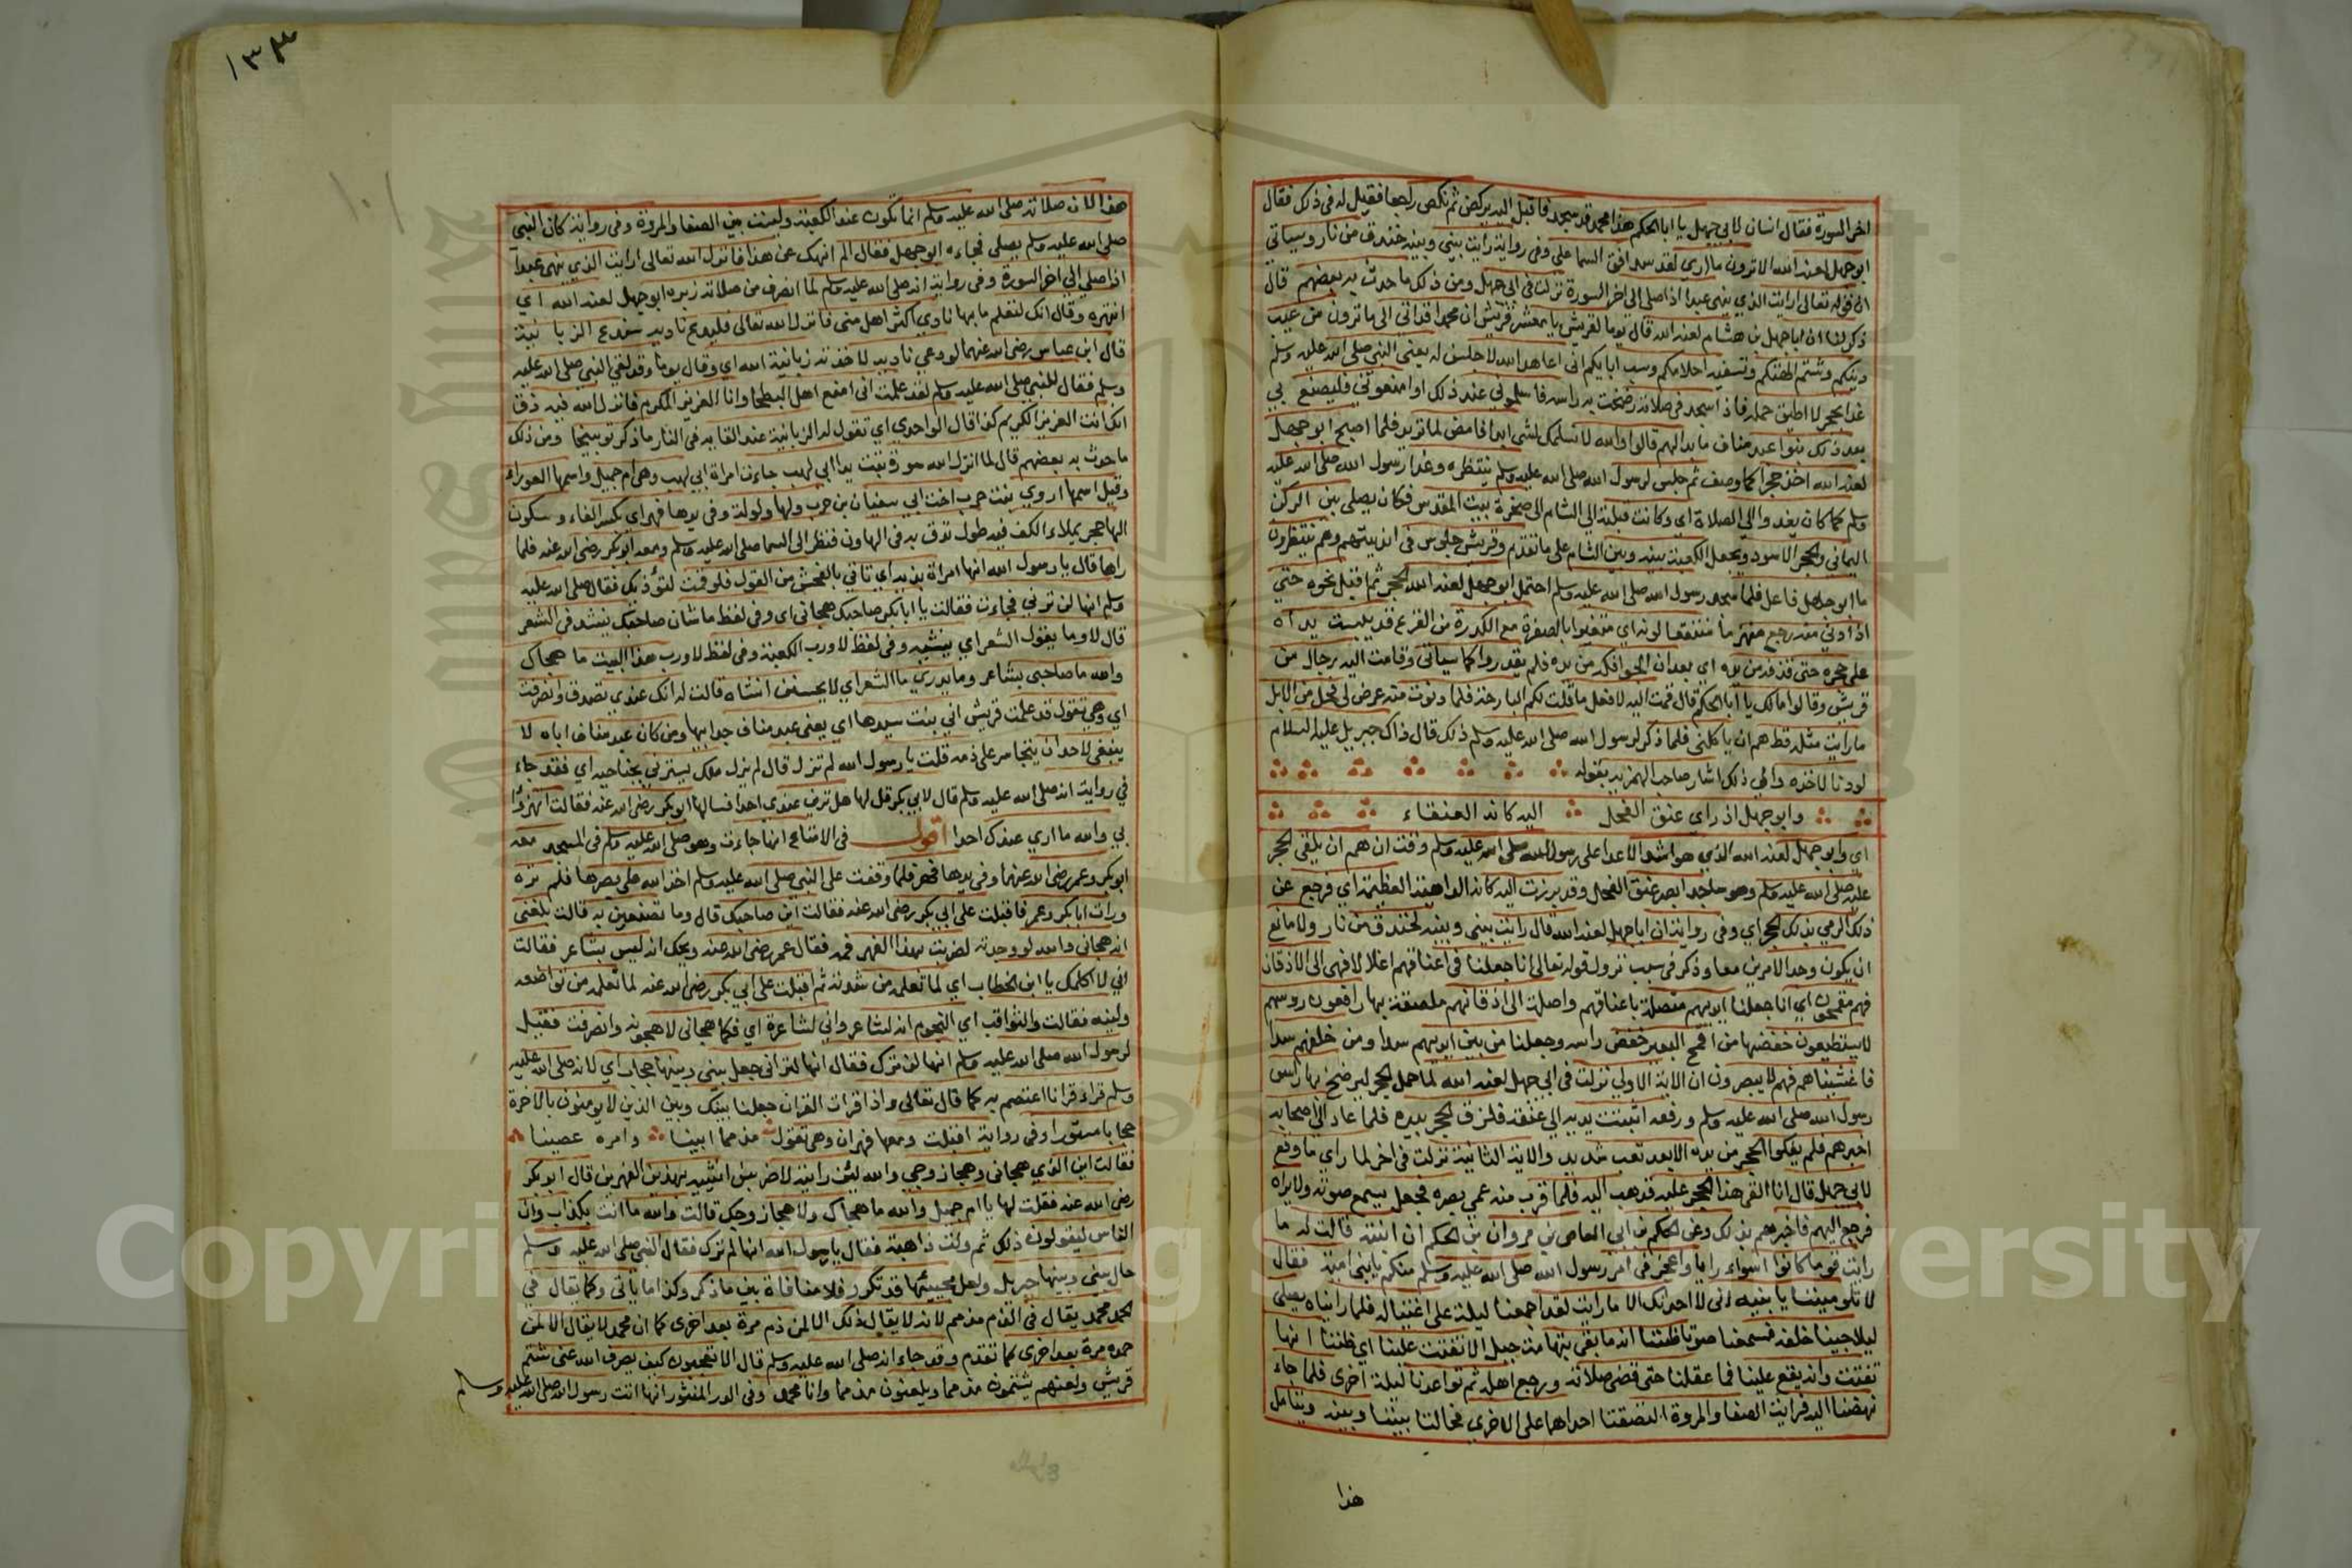 اخر السورة فقال انسان لابي جهل يا ابا الحكم هذا محمد قد سجد فاقبل اليه يركض ثم نكص راجعا فقيل له في ذلك فقال
ابو جهل لعنه الله الا ترون ما اري لقد سد افق السما علي وفي رواية رايت بيني وبينه خندق من نار وسياتي
ان قوله تعالى ارايت الذي ينهى عبدا اذا صلى الى اخر السورة نزلت في ابي جهل ومن ذلك ما حدث به بعضهم قال
ذكر لنا ان ابا جهل بن هشام لعنه الله قال يوما لقريش يا معشر قريش ان محمدا قد اتي الى ما ترون من عيب
دينكم وشتم الهتكم وتسفيه احلامكم وسب ابايكم اني اعاهد الله لاجلسن له يعني النبي صلى الله عليه وسلم
غدا بحجر لا اطيق حمله فاذا سجد في صلاته رضخت به راسه فاسلموني عند ذلك او امنعوني فليصنع بي
بعد ذلك بنوا عبد مناف ما بدا لهم قالوا والله لا نسلمك لشي ابدا فامض لما تريد فلما اصبح ابو جهل
لعنه الله اخذ حجرا كما وصف ثم جلس لرسول الله صلى الله عليه وسلم ينتظره وغدا رسول الله صلى الله عليه
وسلم كما كان يغدوا الي الصلاة اي وكانت قبلته الي الشام الى صخرة بيت المقدس فكان يصلي بين الركن
اليماني والحجر الاسود ويجعل الكعبة بينه وبين الشام على ما تقدم وقريش جلوس في انديتهم وهم ينتظرون
ما ابو جهل فاعل فلما سجد رسول الله صلى الله عليه وسلم احتمل ابو جهل لعنه الله الحجر ثم اقبل نحوه حتي
اذا دنى منه رجع منهزما منتقعا لونه اي متغيرا بالصفرة مع الكدرة من الفزع قد يبست يداه
على حجره حتى قذفه من يده اي بعد ان عالجوا فكه من يده فلم يقدروا كما سياتي وقامت اليه رجال من
قريش وقالوا مالك يا ابا الحكم قال قمت اليه لافعل ما قلت لكم البارحة فلما دنوت منه عرض لي فحل من الابل
ما رايت مثله قط هم ان ياكلني فلما ذكر لرسول الله صلى الله عليه وسلم ذلك قال ذاك جبريل عليه السلام
لو دنا لاخذه والي ذلك اشار صاحب الهمزية بقوله
وابو جهل اذ راي عنق الفحل اليه كانه العنقاء
اي وابو جهل لعنه الله الذي هو اشد الاعدا على رسول الله صلى الله عليه وسلم وقت ان هم ان يلقي الحجر
عليه صلى الله عليه وسلم وهو ساجد ابصر عنق الفحل وقد برزت اليه كانه الداهية العظيمة اي فرجع عن
ذلك الرمي بذلك الحجر اي وفي رواية ان ابا جهل لعنه الله قال رايت بيني وبينه لخندق من نار ولا مانع
ان يكون وجد الامرين معا وذكر في سبب نزول قوله تعالى انا جعلنا في اعناقهم اغلالا فهى الى الاذقان
فهم مقمحون اي انا جعلنا ايديهم متصلة باعناقهم واصلة الى اذقانهم ملصقة بها رافعون روسهم
لا يستطيعون خفضها من اقمح البعير خفض راسه وجعلنا من بين ايديهم سدا ومن خلفهم سدا
فاغشيناهم فهم لا يبصرون ان الاية الاولي نزلت في ابي جهل لعنه الله لما حمل الحجر ليرضخ بها راس
رسول الله صلى الله عليه وسلم ورفعه اثبتت يديه الى عنقه ولزق الحجر بيده فلما عاد الي اصحابه
اخبرهم فلم يفكوا الحجر من يده الا بعد تعب شديد والاية الثانية نزلت في اخر لما راي ما وقع
لابي جهل قال انا القي هذا الحجر عليه فذهب اليه فلما قرب منه عمي بصره فجعل يسمع صوته ولا يراه
فرجع اليهم فاخبرهم بذلك وعن الحكم بن ابي العاص بن مروان بن الحكم ان ابنته قالت له ما
رايت قوما كانوا اسواء رايا واعجز في امر رسول الله صلى الله عليه وسلم منكم يا بني امية فقال
لا تلومينا يا بنيه اني لا احدثك الا ما رايت لقد اجمعنا ليلة على اغتياله فلما رايناه يصلي
ليلا جينا خلفه فسمعنا صوتا ظننا انه ما بقي بتهامة جبل الا تفتت علينا اي ظننا انها
تفتت وانه يقع علينا فما عقلنا حتى قضى صلاته ورجع اهله ثم تواعدنا ليلة اخرى فلما جاء
نهضنا اليه فرايت الصفا والمروة التصقتا احداهما على الاخري فحالتا بيننا وبينه ويتامل
هذا
١٣٣
هذا لان صلاته صلى الله عليه وسلم انما تكون عند الكعبة وليست بين الصفا والمروة وفي رواية كان النبي
صلى الله عليه وسلم يصلي فجاءه ابو جهل فقال الم انهك عن هذا فانزل الله تعالى ارايت الذي ينهى عبدا
اذا صلي الي اخر السورة وفي رواية انه صلى الله عليه وسلم لما انصرف من صلاته زبره ابو جهل لعنه الله اي
انتهره وقال انك لتعلم ما بها نادي اكثر اهل مني فانزل الله تعالى فليدع ناديه سندع الزبانية
قال ابن عباس رضى الله عنهما لو دعى ناديه لاخذته زبانية الله اي وقال يوما وقد لقي النبي صلى الله عليه
وسلم فقال للنبي صلى الله عليه وسلم لقد علمت اني امنع اهل البطحا وانا العزيز الكريم فانزل الله فيه ذق
انك انت العزيز الكريم كذا قال الواحدي اي تقول له الزبانية عند القايه في النار ما ذكر توبيخا ومن ذلك
ما حدث به بعضهم قال لما انزل الله سورة تبت يدا ابي لهب جاءت امراة ابي لهب وهى ام جميل واسمها العوراء
وقيل اسمها اروي بنت حرب اخت ابي سفيان بن حرب ولها ولولة وفي يدها فهر اي بكسر الفاء وسكون
الها حجر يملاء الكف فيه طول تدق به في الهاون فنظر الى السما صلى الله عليه وسلم ومعه ابو بكر رضى الله عنه فلما
راها قال يا رسول الله انها امراة بذية اي تاتي بالفحش من القول فلو قمت لتؤذيك فقال صلى الله عليه
وسلم انها لن تراني فجاءت فقالت يا ابا بكر صاحبك هجاني اي وفي لفظ ما شان صاحبك ينشد في الشعر
قال لا وما يقول الشعر اي ينشيه وفي لفظ لا ورب الكعبة وفي لفظ لا ورب هذا البيت ما هجاك
والله ما صاحبي بشاعر وما يدري ما الشعر اي لا يحسن انشاه قالت له انك عندي تصدق وانصرفت
اي وهي تقول قد علمت قريش اني بنت سيدها اي يعنى عبد مناف جد ابيها ومن كان عبد مناف اباه لا
ينبغي لاحد ان يتجاسر على ذمه قلت يا رسول الله لم ترك قال لم يزل ملك يسترني بجناحيه اي فقد جاء
في رواية انه صلى الله عليه وسلم قال لابي بكر قل لها هل ترين عندي احدا فسالها ابو بكر رضى الله عنه فقالت اتهزؤا
بي والله ما اري عندك احدا اقول في الامتاع انها جاءت وهو صلى الله عليه وسلم في المسجد معه
ابو بكر وعمر رضى الله عنهما وفي يدها فهر فلما وقفت على النبي صلى الله عليه وسلم اخذ الله على بصرها فلم تره
ورات ابا بكر وعمر فاقبلت على ابي بكر رضى الله عنه فقالت اين صاحبك قال وما تصنعين به قالت بلغني
انه هجاني والله لو وجدته لضربت بهذا الفهر فمه فقال عمر رضى الله عنه ويحك انه ليس بشاعر فقالت
اني لا اكلمك يا ابن الخطاب اي لما تعلمه من شدته ثم اقبلت على ابي بكر رضى الله عنه لما تعلمه من تواضعه
ولينه فقالت والثواقب اي النجوم انه لشاعر واني لشاعرة اي فكما هجاني لاهجونه وانصرفت فقيل
لرسول الله صلى الله عليه وسلم انها لم ترك فقال انها لن تراني جعل بيني وبينها حجاب اي لانه صلى الله عليه
وسلم قراء قرانا اعتصم به كما قال تعالى واذا قرات القران جعلنا بينك وبين الذين لا يومنون بالاخرة
حجابا مستورا وفي رواية اقبلت ومعها فهران وهى تقول مذمما ابينا وامره عصينا
فقالت اين الذي هجاني وهجا زوجي والله لئن رايته لاضربن انثييه بهذين الفهرين قال ابو بكر
رضى الله عنه فقلت لها يا ام جميل والله ما هجاك ولا هجا زوجك قالت والله ما انت بكذاب وان
الناس ليقولون ذلك ثم ولت ذاهبة فقال يا رسول الله انها لم ترك فقال النبي صلى الله عليه وسلم
حال بيني وبينها جبريل ولعل مجيئها قد تكرر فلا منافاة بين ما ذكر وكذا ما ياتي وكما يقال في
الحمد محمد يقال في الذم مذمم لانه لا يقال ذلك الا لمن ذم مرة بعد اخرى كما ان محمد لا يقال الا لمن
حمد مرة بعد اخرى كما تقدم وقد جاء انه صلى الله عليه وسلم قال الا تعجبون كيف يصرف الله عني شتم
قريش ولعنهم يشتمون مذمما ويلعنون مذمما وانا محمد وفي الدر المنثور انها اتت رسول الله صلى الله عليه وسلم